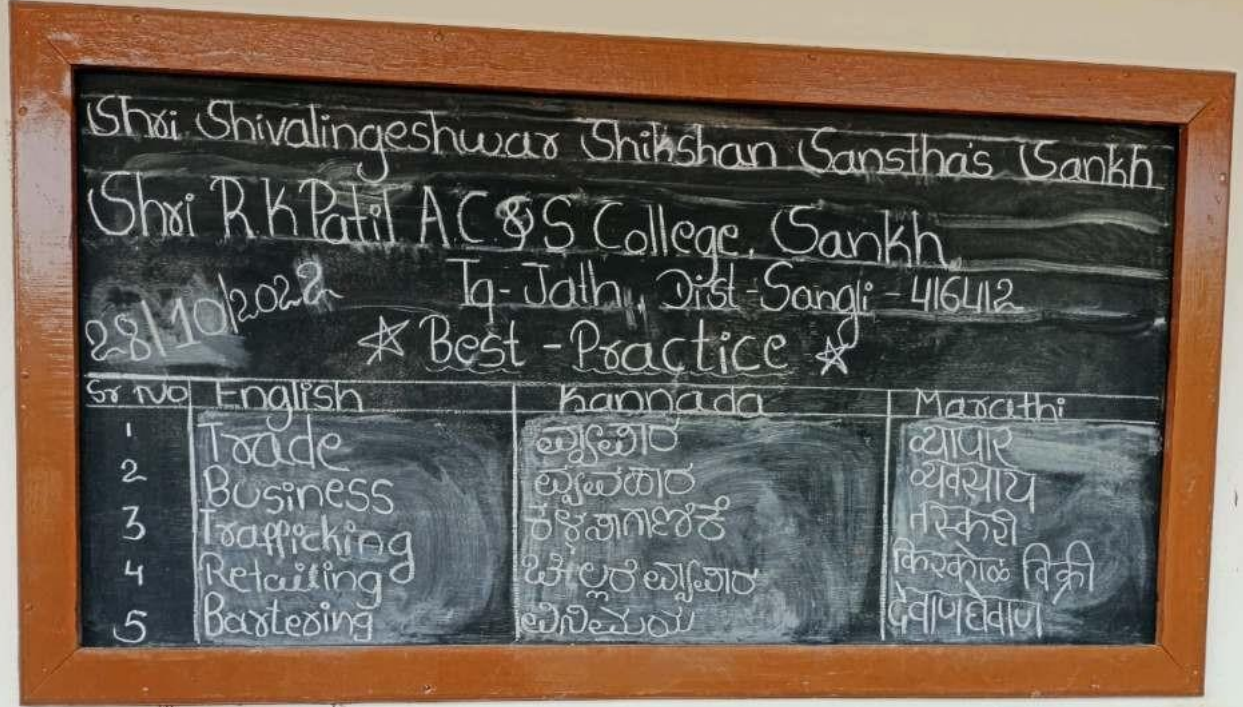 Shri Shivalingeshwar Shikshan Sanstha's Sankh
Shri R.K Patil A.C.&S College, Sankh
Tq - Jath, Dist - Sangli - 416412
28/10/2022
☆ Best - Practice ☆
Sr No English Kannada Marathi
1 Trade ವ್ಯಾಪಾರ व्यापार
2 Business ವ್ಯವಹಾರ व्यवसाय
3 Trafficking ಕಳ್ಳಸಾಗಾಣಿಕೆ तस्करी
4 Retailing ಚಿಲ್ಲರೆ ವ್ಯಾಪಾರ किरकोळ विक्री
5 Bartering ವಿನಿಮಯ देवाणघेवाण